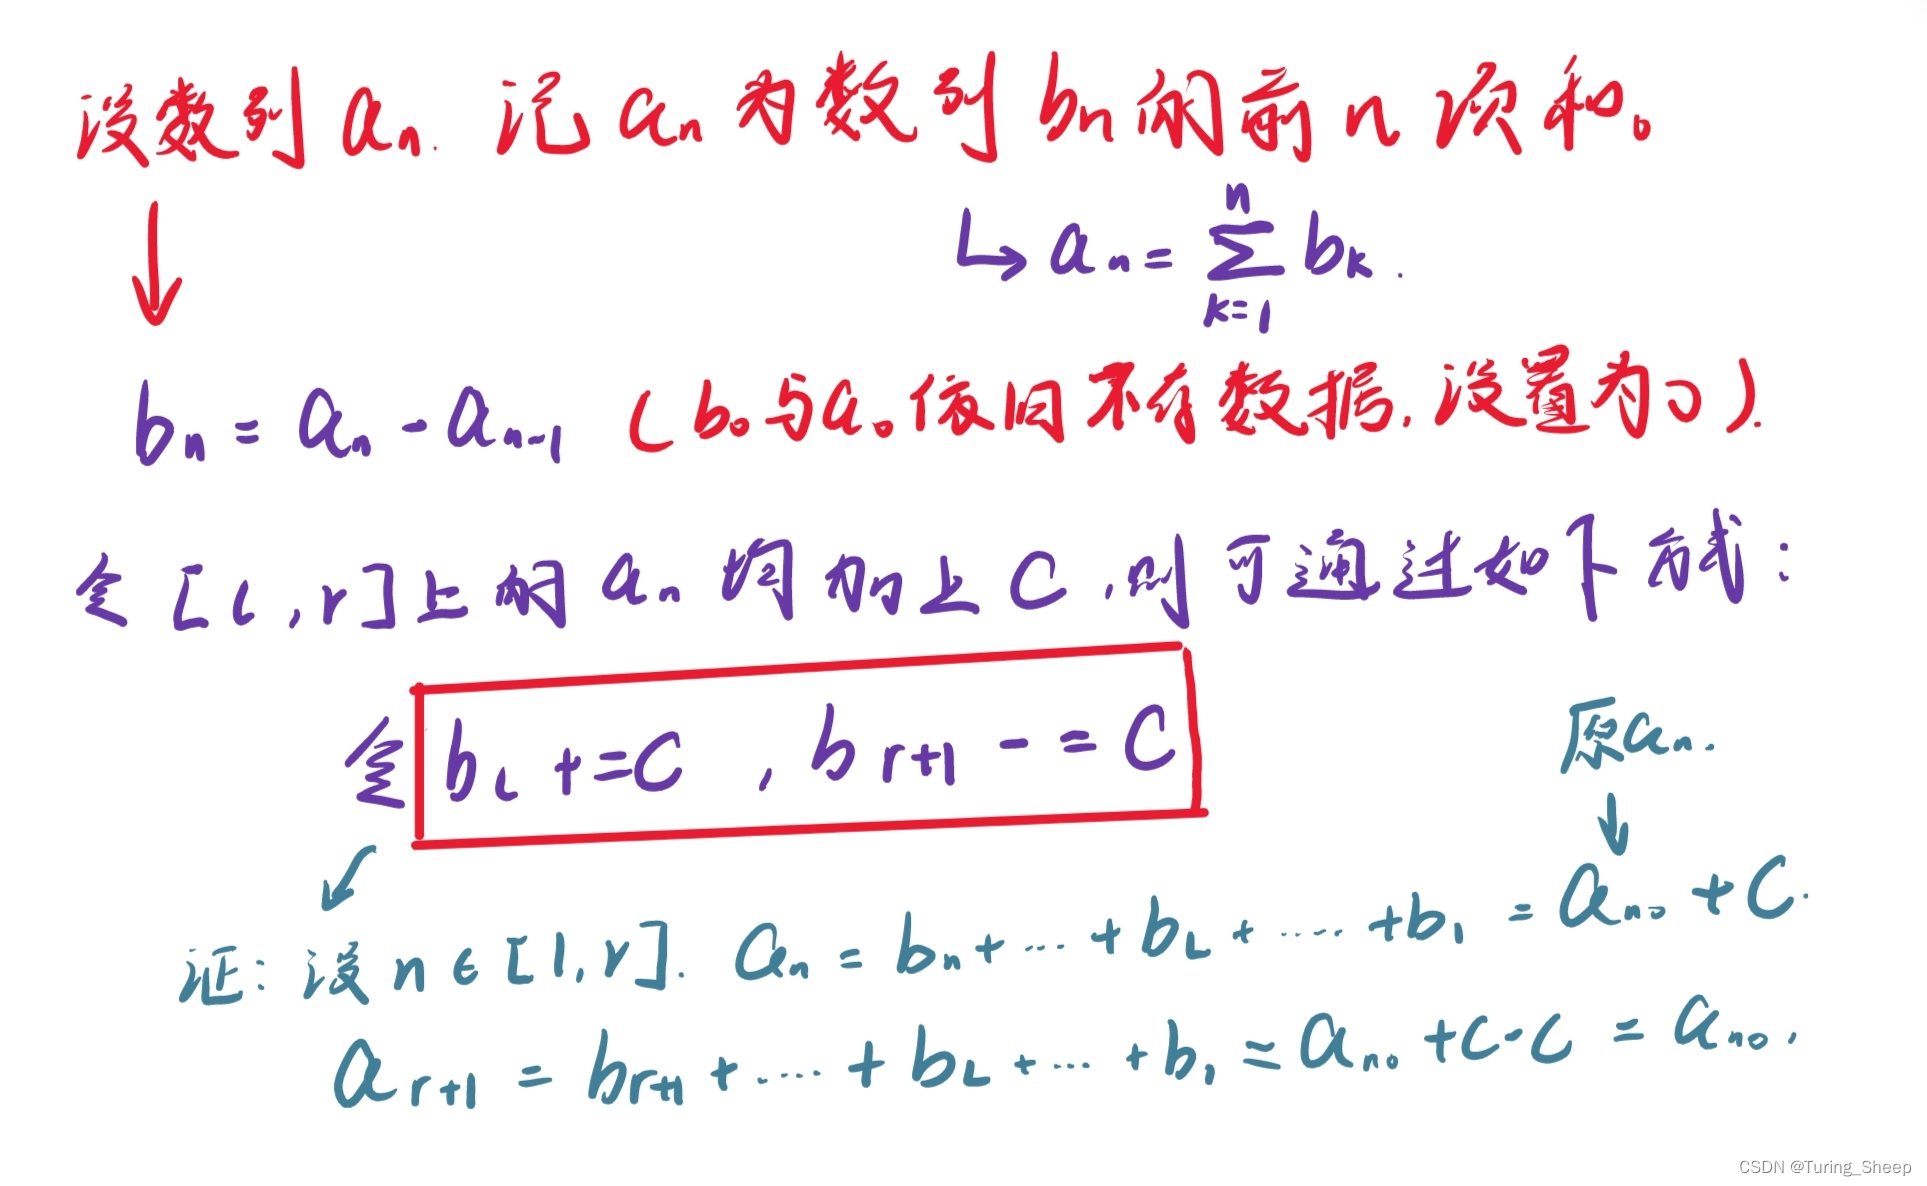 设数列 aₙ. 记 aₙ 为数列 bₙ 的前 n 项和。
↳ aₙ = ∑ₖ₌₁ⁿ bₖ.
bₙ = aₙ - aₙ₋₁ (b₀与a₀依旧不存数据,设置为0).
令[l,r]上的 aₙ 均加上 C,则可通过如下方式:
令 b_L += C , b_{r+1} -= C
原aₙ.
证: 设 n ∈ [l,r]. aₙ = bₙ + ... + b_L + ..... + b₁ = a_{n0} + C.
a_{r+1} = b_{r+1} + .... + b_L + ... + b₁ = a_{n0} + C - C = a_{n0}.
CSDN @Turing_Sheep